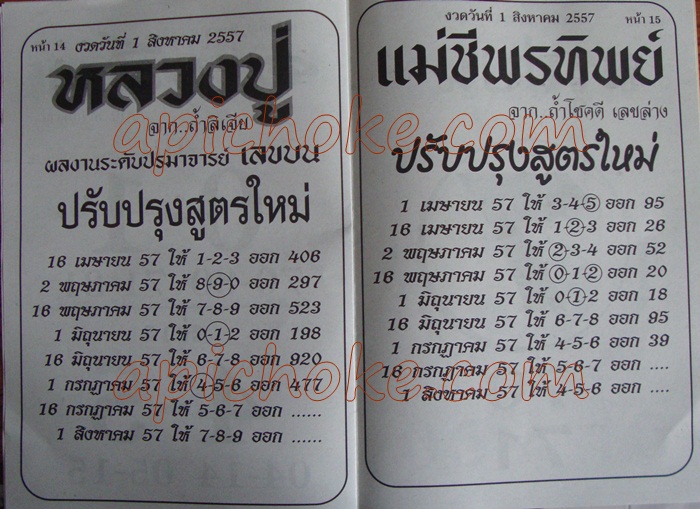 หน้า 14 งวดวันที่ 1 สิงหาคม 2557
หลวงปู่
จาก..ถ้ำลิเจีย
ผลงานระดับปรมาจารย์ เลขบน
ปรับปรุงสูตรใหม่
16 เมษายน 57 ให้ 1-2-3 ออก 406
2 พฤษภาคม 57 ให้ 8-9-0 ออก 297
16 พฤษภาคม 57 ให้ 7-8-9 ออก 523
1 มิถุนายน 57 ให้ 0-1-2 ออก 198
16 มิถุนายน 57 ให้ 6-7-8 ออก 920
1 กรกฎาคม 57 ให้ 4-5-6 ออก 477
16 กรกฎาคม 57 ให้ 5-6-7 ออก ......
1 สิงหาคม 57 ให้ 7-8-9 ออก ......
งวดวันที่ 1 สิงหาคม 2557 หน้า 15
แม่ชีพรทิพย์
จาก..ถ้ำโชคดี เลขล่าง
ปรับปรุงสูตรใหม่
1 เมษายน 57 ให้ 3-4-5 ออก 95
16 เมษายน 57 ให้ 1-2-3 ออก 26
2 พฤษภาคม 57 ให้ 2-3-4 ออก 52
16 พฤษภาคม 57 ให้ 0-1-2 ออก 20
1 มิถุนายน 57 ให้ 0-1-2 ออก 18
16 มิถุนายน 57 ให้ 6-7-8 ออก 95
1 กรกฎาคม 57 ให้ 4-5-6 ออก 39
16 กรกฎาคม 57 ให้ 5-6-7 ออก ....
1 สิงหาคม 57 ให้ 4-5-6 ออก ....
apichoke.com
apichoke.com
apichoke.com